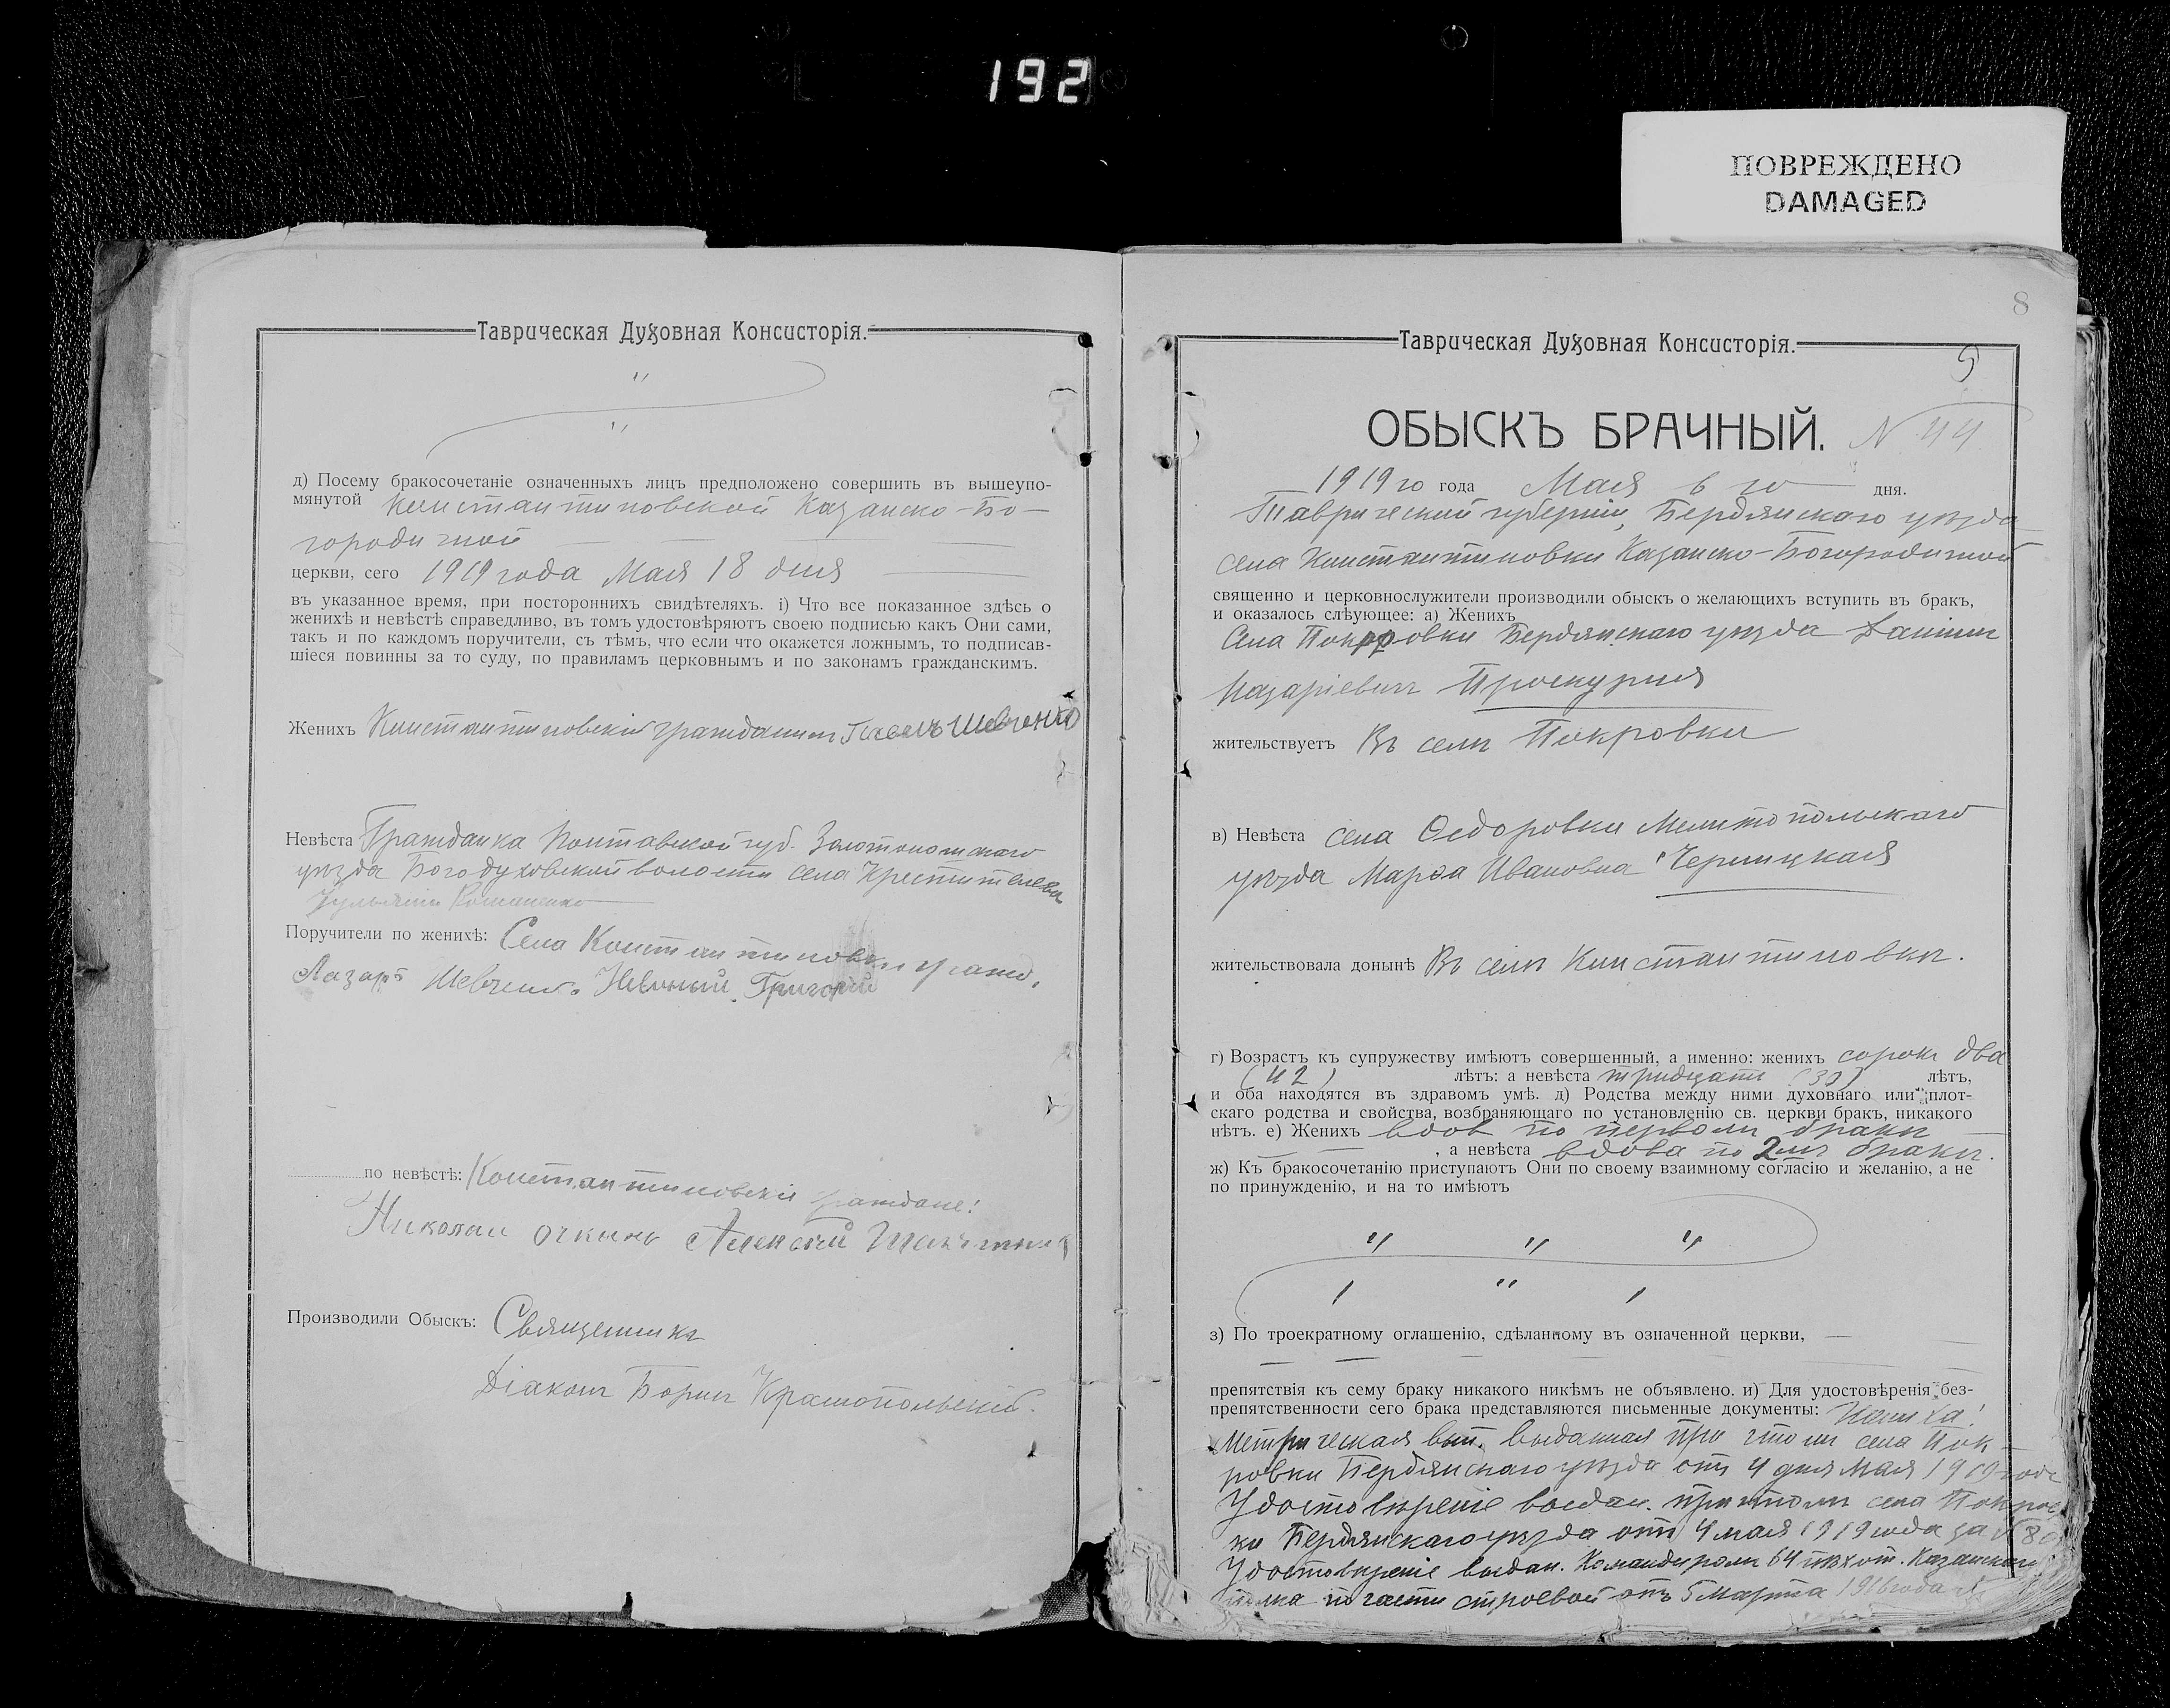 192
ПОВРЕЖДЕНО
DAMAGED
Таврическая Духовная Консисторія.
д) Посему бракосочетаніе означенныхъ лицъ предположено совершить въ вышеупо-
мянутой Константиновской Казанско-Бо-
городичной
церкви, сего 1919 года Мая 18 дня
въ указанное время, при постороннихъ свидѣтеляхъ. і) Что все показанное здѣсь о
женихѣ и невѣстѣ справедливо, въ томъ удостовѣряютъ своею подписью какъ Они сами,
такъ и по каждомъ поручители, съ тѣмъ, что если что окажется ложнымъ, то подписав-
шіеся повинны за то суду, по правиламъ церковнымъ и по законамъ гражданскимъ.
Женихъ Константиновскій гражданинъ Павелъ Шевченко
Невѣста Гражданка Полтавской губ. Золотоношскаго
уѣзда Богодуховской волости села Крестителева
Романенко
Поручители по женихѣ: Села Константиновки гражд.
Лазарь Шевченко Григорій
по невѣстѣ: Константиновскіе граждане:
Николай Алексѣй
Производили Обыскъ: Священникъ
Діаконъ Борисъ Краснопольскій.
8
Таврическая Духовная Консисторія.
9
ОБЫСКЪ БРАЧНЫЙ. N 44
1919 го года Мая 6 го дня.
Таврической губерніи, Бердянскаго уѣзда
села Константиновки Казанско-Богородичной
священно и церковнослужители производили обыскъ о желающихъ вступить въ бракъ,
и оказалось слѣующее: а) Женихъ
Села Покрровки Бердянскаго уѣзда Даніилъ
Назаріевичъ Проскурня
жительствуетъ Въ селѣ Покровкѣ
в) Невѣста села Ѳедоровки Мелитопольскаго
уѣзда Марѳа Ивановна Черницкая
жительствовала донынѣ Въ селѣ Константиновкѣ.
г) Возрастъ къ супружеству имѣютъ совершенный, а именно: женихъ сорокъ два
(42) лѣтъ: а невѣста тридцать (30) лѣтъ,
и оба находятся въ здравомъ умѣ. д) Родства между ними духовнаго или плот-
скаго родства и свойства, возбраняющаго по установленію св. церкви бракъ, никакого
нѣтъ. е) Женихъ вдовъ по первомъ бракѣ
, а невѣста вдова по 2мъ бракѣ.
ж) Къ бракосочетанію приступаютъ Они по своему взаимному согласію и желанію, а не
по принужденію, и на то имѣютъ
з) По троекратному оглашенію, сдѣланному въ означенной церкви,
препятствія къ сему браку никакого никѣмъ не объявлено. и) Для удостовѣренія без-
препятственности сего брака представляются письменные документы: Жениха:
Метрическая вып. выданная причтомъ села Пок-
ровки Бердянскаго уѣзда отъ 4 дня Мая 1919 года
Удостовѣреніе выдан. причтомъ села Покров
ки Бердянскаго уѣзда отъ 4 мая 1919 года за N 80
Удостовѣреніе выдан. Командиромъ 64 пѣхот. Казанскаго
полка по части строевой отъ 5 Марта 1916 года